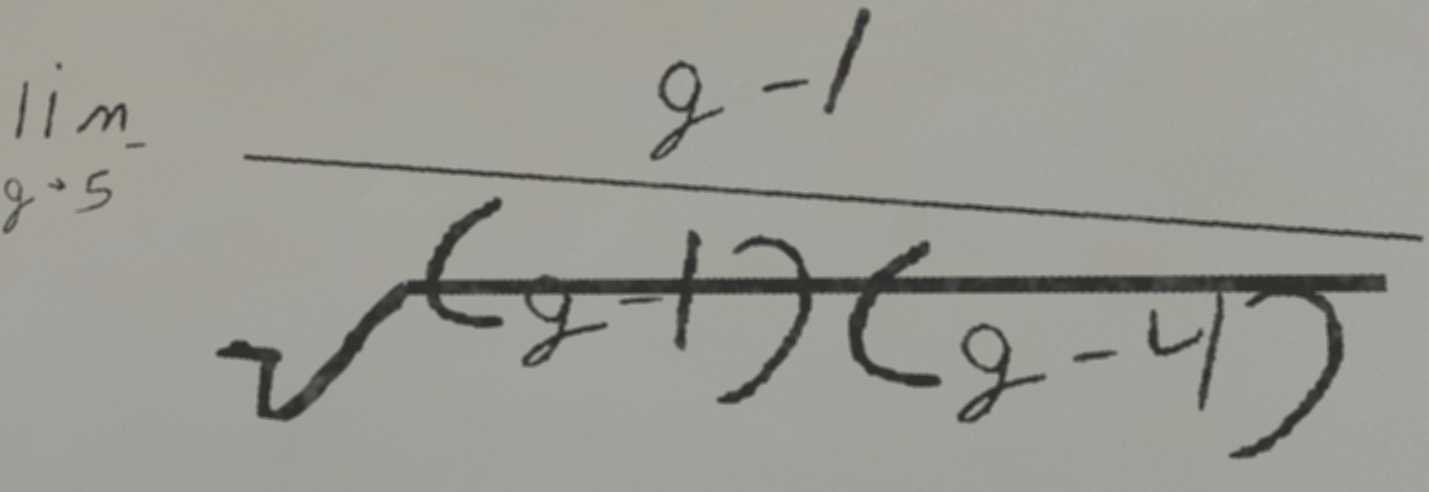 lim_{g→5^-} \frac{g-1}{\sqrt{(g-1)(g-4)}}